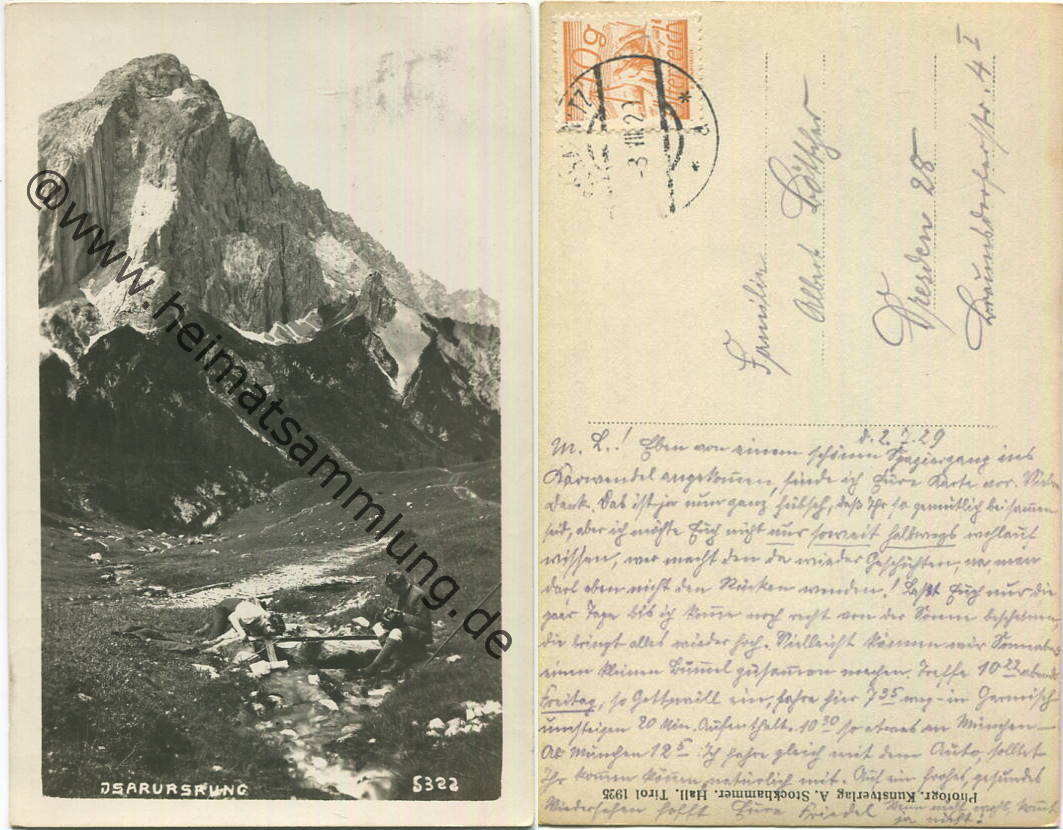 @www.heimatsammlung.de
ISARURSPRUNG
5322
Familie
Albert Böttcher
Dresden 28
4 I
d. 2. 7. 29
M. L.! Eben von einem schönen Spaziergang ins
Karwendel angekommen, finde ich Eure Karte vor. Vielen
Dank. Das ist ja nur ganz hübsch, daß Ihr so gemütlich beisammen
seid, aber ich möchte Euch nicht nur soweit halbwegs wohlauf
wissen, wer macht den da wieder Geschichten, na, man
darf eben nicht den Rücken wenden! Laßt Euch nur die
paar Tage bis ich komme noch recht von der Sonne bescheinen
die bringt alles wieder hoch. Vielleicht können wir Sonnabend
einen kleinen Bummel zusammen machen. Treffe 10 22 abends
Freitag, so Gott will ein, fahre hier 7 35 weg – in Garmisch
umsteigen 20 Min. Aufenthalt. 10 30 so etwas an München –
Ab München 12 5. Ich fahre gleich mit dem Auto, solltet
Ihr kommen können, natürlich mit. Auf ein frohes, gesundes
Wiedersehen hofft Eure Friedel
ja nicht!
Photogr. Kunstverlag A. Stockhammer, Hall, Tirol 1925